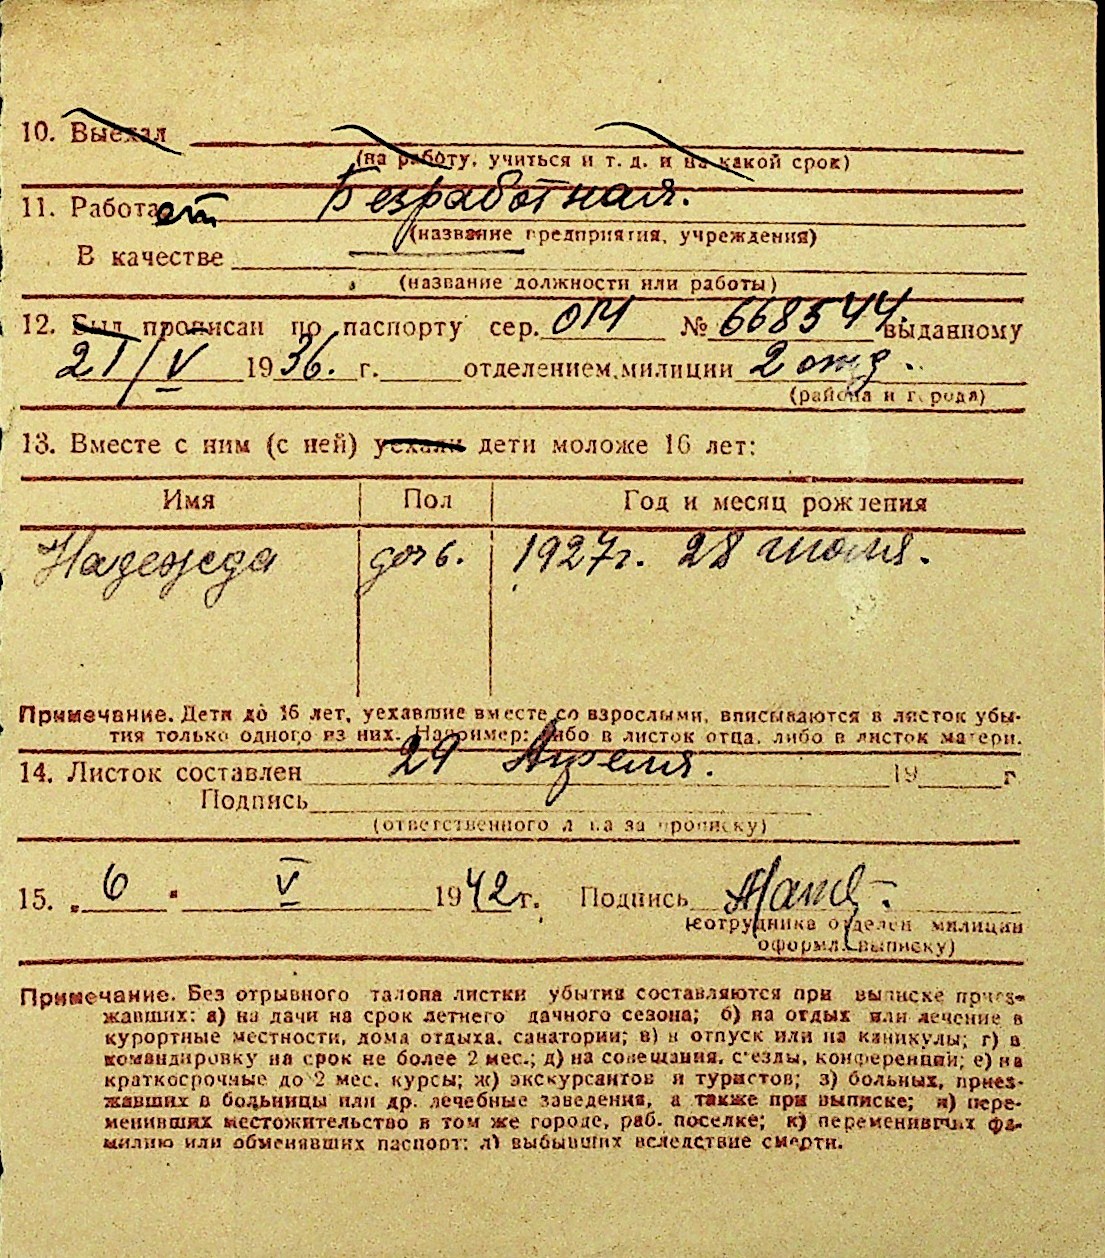 10. Выехал
(на работу, учиться и т. д. и на какой срок)
11. Работает Безработная.
(название предприятия, учреждения)
В качестве
(название должности или работы)
12. Был прописан по паспорту сер. ОМ № 668544. выданному
21/V 1936. г. отделением милиции 2 отд.
(района и города)
13. Вместе с ним (с ней) уехали дети моложе 16 лет:
Имя Пол Год и месяц рождения
Надежда дочь. 1927г. 28 июля.
Примечание. Дети до 16 лет, уехавшие вместе со взрослыми, вписываются в листок убы-
тия только одного из них. Например: либо в листок отца, либо в листок матери.
14. Листок составлен 29 Апреля. 19 г
Подпись
(ответственного лица за прописку)
15. „6" V 1942 г. Подпись
(сотрудника отделен милиции
оформл. выписку)
Примечание. Без отрывного талона листки убытия составляются при выписке приез-
жавших: а) на дачи на срок летнего дачного сезона; б) на отдых или лечение в
курортные местности, дома отдыха, санатории; в) в отпуск или на каникулы; г) в
командировку на срок не более 2 мес.; д) на совещания, с'езды, конференции; е) на
краткосрочные до 2 мес. курсы; ж) экскурсантов и туристов; з) больных, приез-
жавших в больницы или др. лечебные заведения, а также при выписке; и) пере-
менивших местожительство в том же городе, раб. поселке; к) переменивших фа-
милию или обменявших паспорт; л) выбывших вследствие смерти.